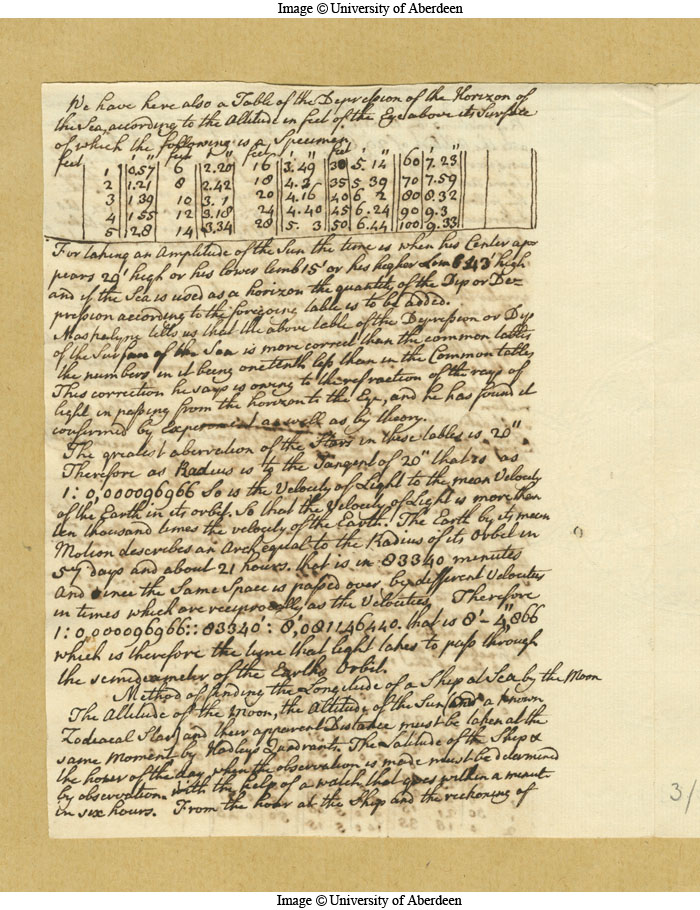 Image © University of Aberdeen
We have here also a Table of the Depression of the Horizon of
the Sea, according to the Altitude in feet of the Eye above its Surface
of which the following is a Specimen
feet ' " feet ' " feet ' " feet ' " ' "
1 0.57 6 2.20 16 3.49 30 5.14 60 7.23
2 1.21 8 2.42 18 4.3 35 5.39 70 7.59
3 1.39 10 3.1 20 4.16 40 6.2 80 8.32
4 1.55 12 3.18 24 4.40 45 6.24 90 9.3
5 2.8 14 3.34 28 5.3 50 6.44 100 9.33
For taking an Amplitude of the Sun the time is when his Center ap=
pears 20' high or his lower limb 15' or his higher Limb 43' high
and if the Sea is used as a horizon the quantity of the Dip or De=
pression according to the foregoing table is to be added.
Maskelyne tells us that the above table of the Depression or Dip
of the Surface of the Sea is more correct than the common tables
the numbers in it being one tenth less than in the Common tables
This correction he says is owing to the refraction of the rays of
light in passing from the horizon to the Eye, and he has found it
confirmed by Experiment as well as by theory.
The greatest aberration of the Stars in these tables is 20".
Therefore as Radius is to the Tangent of 20" that is as
1 : 0,000096966 So is the Velocity of Light to the mean Velocity
of the Earth in its orbit. So that the Velocity of Light is more than
ten thousand times the velocity of the Earth. The Earth by its mean
Motion describes an Arch equal to the Radius of its Orbit in
57 days and about 21 hours. that is in 83340 minutes
And since the Same Space is passed over by different Velocities
in times which are reciprocally as the Velocities Therefore
1 : 0,000096966 :: 83340' : 8',081146440. that is 8' - 4",866
which is therefore the time that light takes to pass through
the semidiameter of the Earths Orbit.
Method of finding the Longitude of a Ship at Sea by the Moon
The Altitude of the Moon, the Altitude of the Sun (or a known
Zodiacal Star) and their apparent Distance must be taken at the
same Moment by Hadleys Quadrant. The Latitude of the Ship &
the hour of the day when the observation is made must be determined
by observation with the help of a watch that goes within a minute
in six hours. From the hour at the Ship and the reckoning of
3/
Image © University of Aberdeen